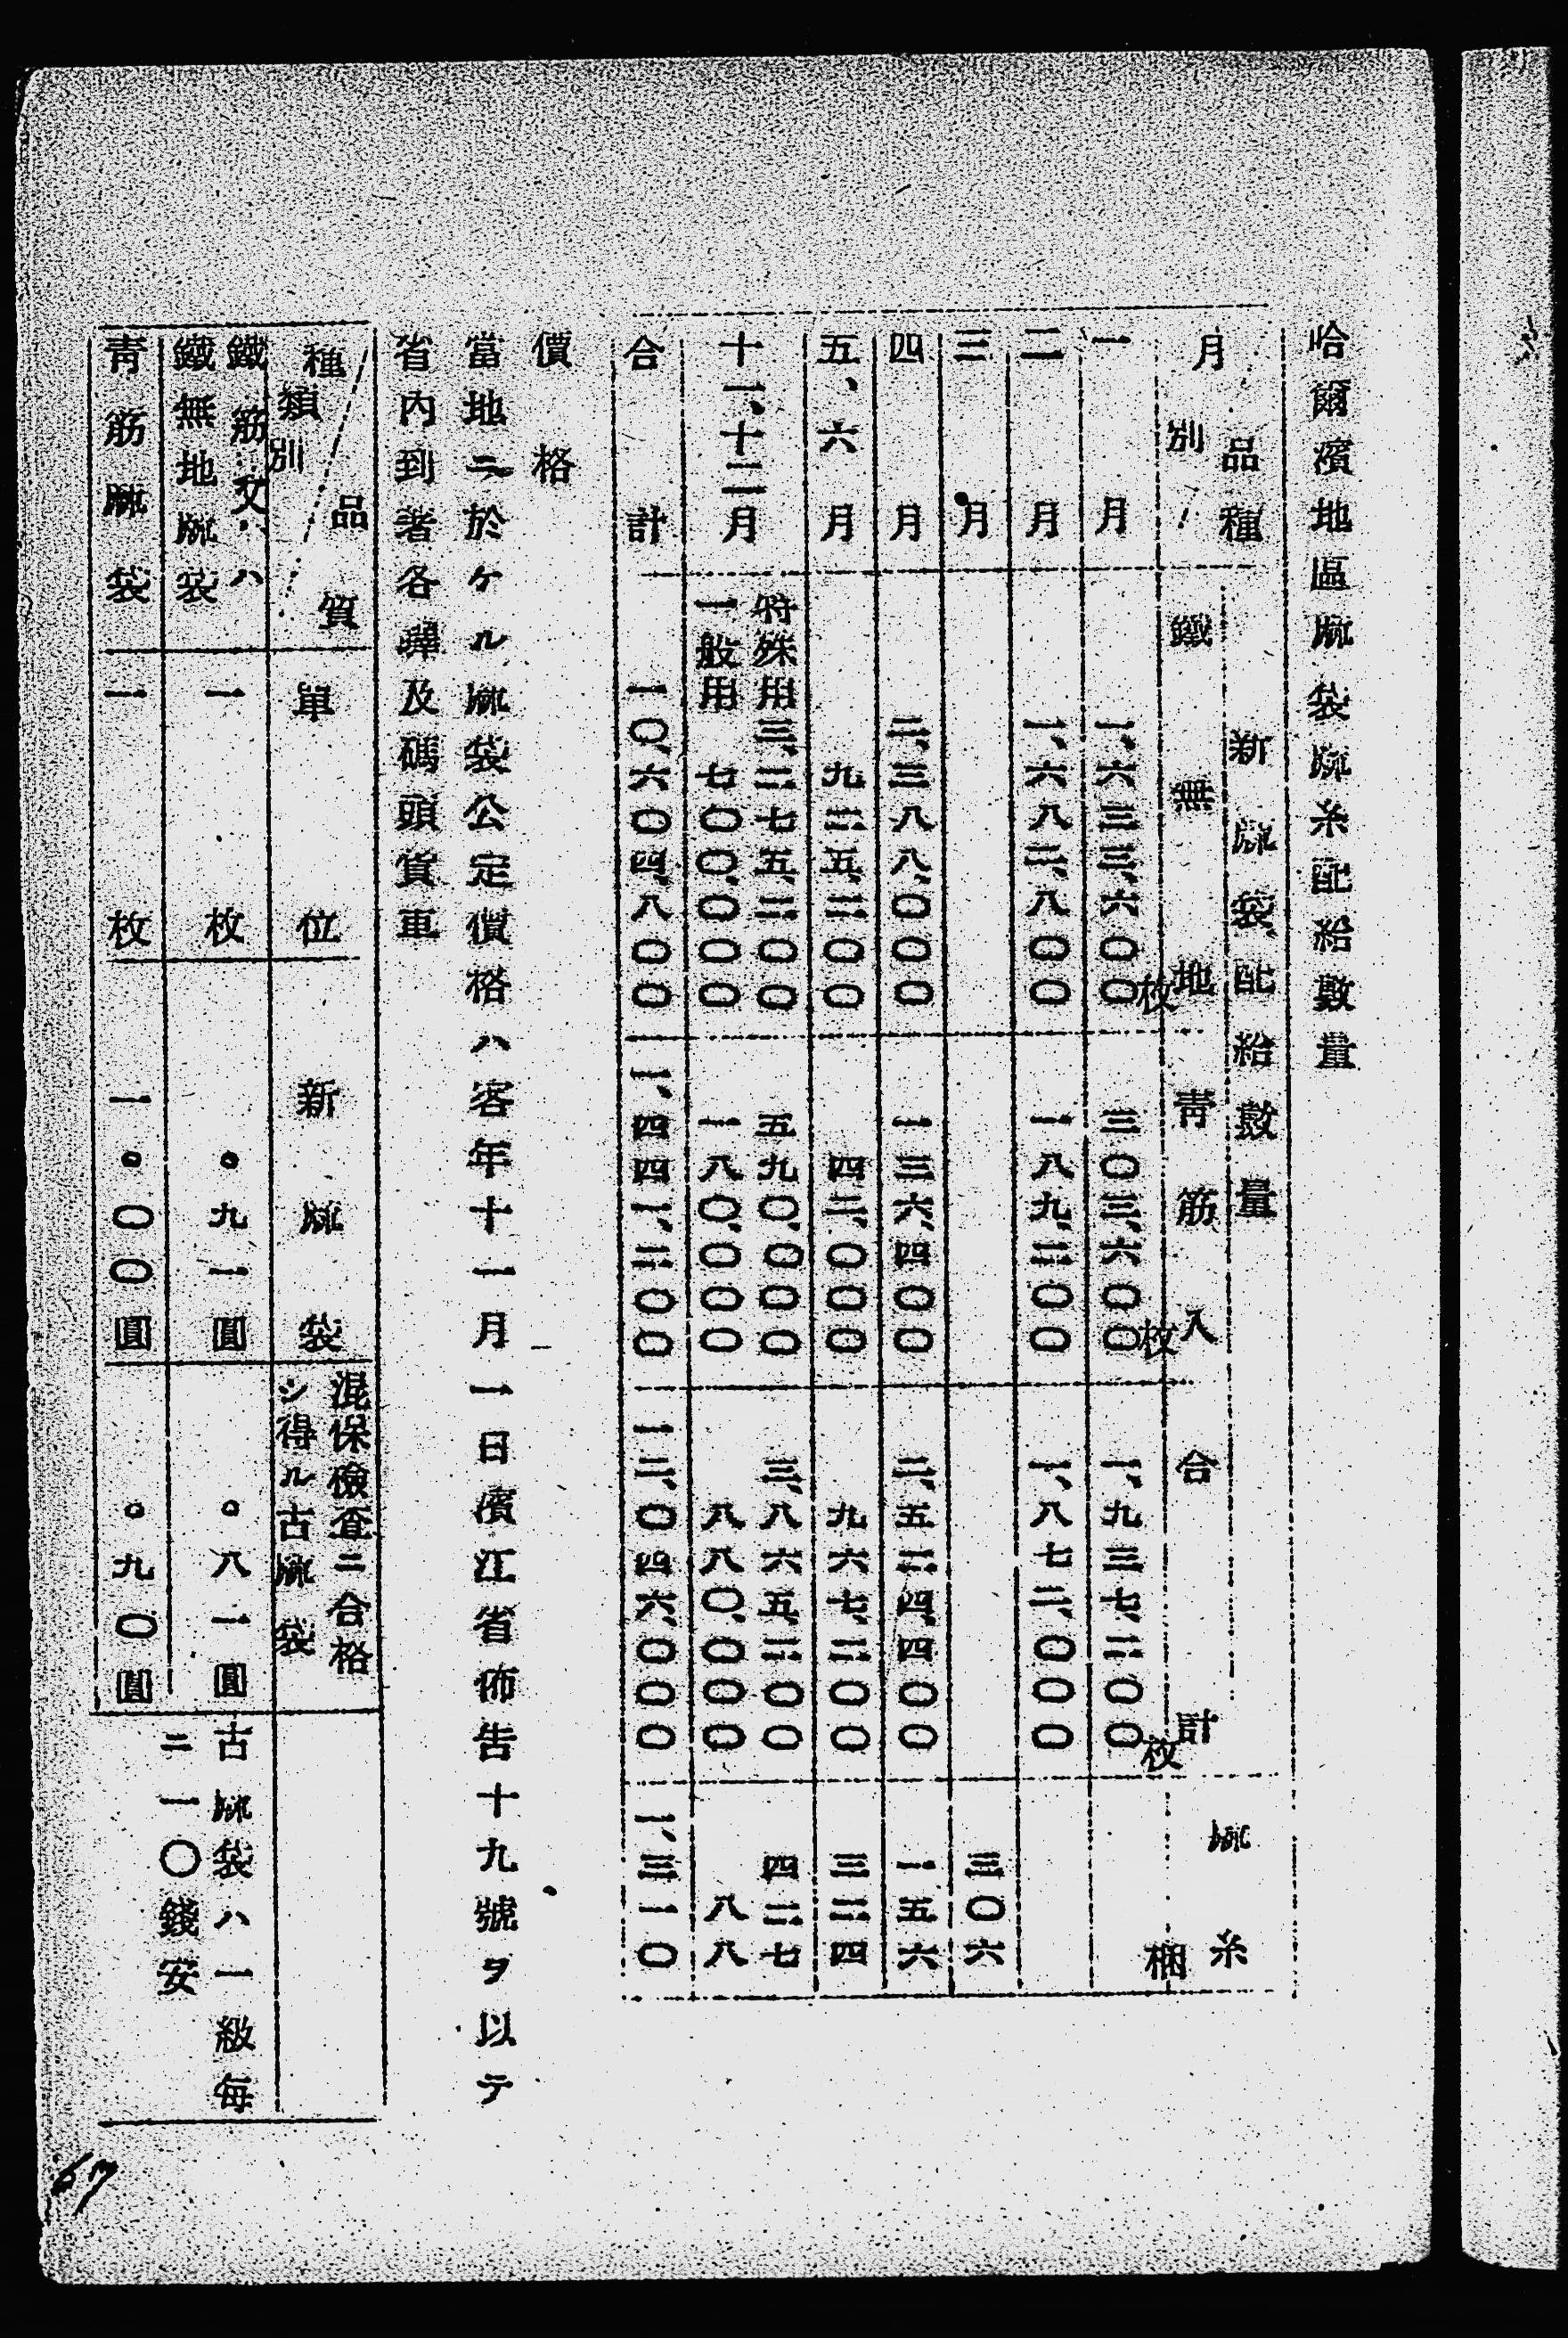 哈爾濱地區麻袋麻糸配給數量
月別 品種 新麻袋配給數量 麻糸
鐵無地 青筋入 合計
一月 一、六三三、六〇〇枚 三〇三、六〇〇枚 一、九三七、二〇〇枚 梱
二月 一、六八二、八〇〇 一八九、二〇〇 一、八七二、〇〇〇
三月 三〇六
四月 二、三八八、〇〇〇 一三六、四〇〇 二、五二四、四〇〇 一五六
五、六月 九二五、二〇〇 四二、〇〇〇 九六七、二〇〇 三二四
十一、十二月 特殊用 三、二七五、二〇〇 五九〇、〇〇〇 三、八六五、二〇〇 四二七
一般用 七〇〇、〇〇〇 一八〇、〇〇〇 八八〇、〇〇〇 八八
合計 一〇、六〇四、八〇〇 一、四四一、二〇〇 一二、〇四六、〇〇〇 一、三一〇
價格
當地ニ於ケル麻袋公定價格ハ客年十一月一日濱江省佈告十九號ヲ以テ
省內到著各驛及碼頭貨車
種類別 品質 單位 新麻袋 混保檢査ニ合格
シ得ル古麻袋
鐵筋又ハ
鐵無地麻袋 一枚 〇九一圓 〇八一圓 古麻袋ハ一級每
ニ一〇錢安
青筋麻袋 一枚 一〇〇〇圓 〇九〇圓
67